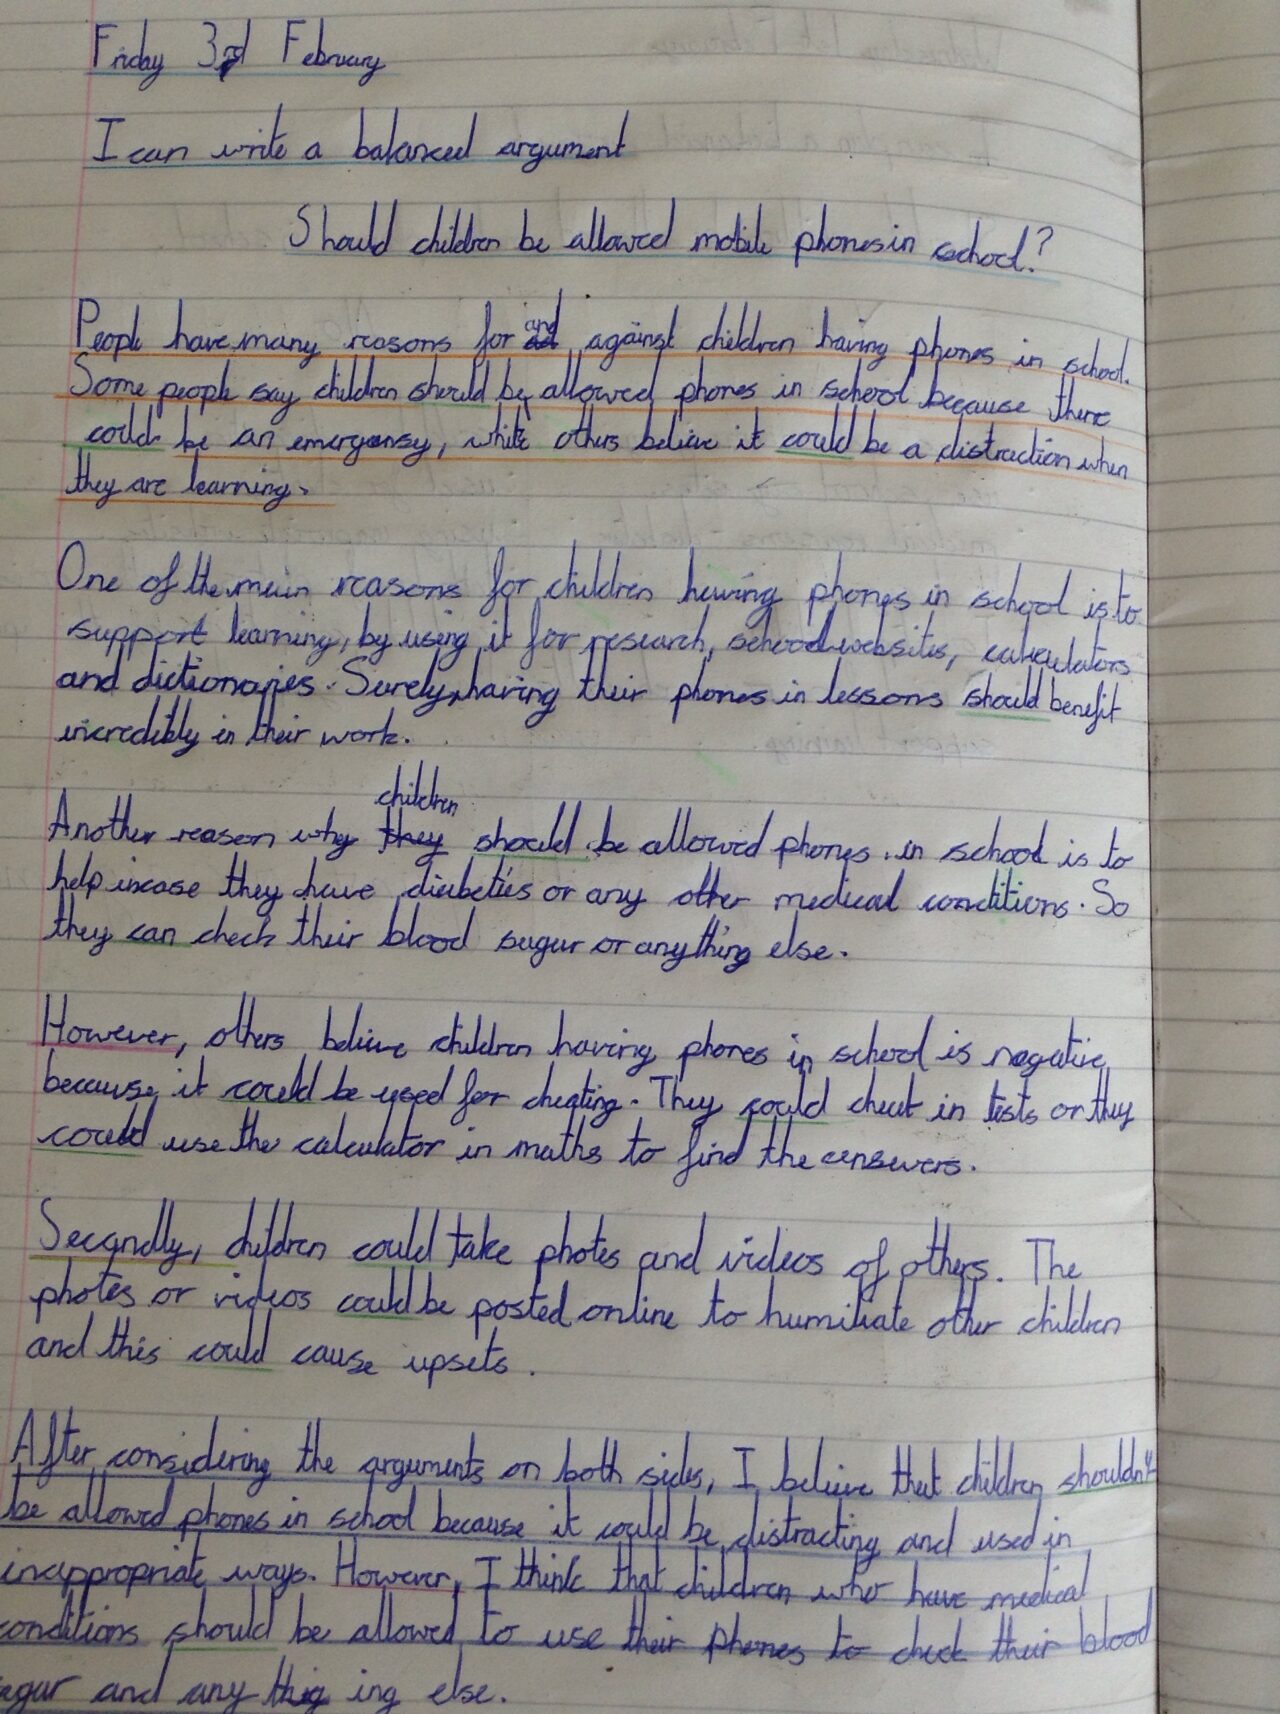 Friday 3rd February
I can write a balanced argument
Should children be allowed mobile phones in school?
and
People have many reasons for against children having phones in school.
Some people say children should be allowed phones in school because there
could be an emergensy, while others believe it could be a distraction when
they are learning.
One of the main reasons for children having phones in school is to
support learning, by using it for research, school websites, calculators
and dictionaries. Surely, having their phones in lessons should benefit
incredibly in their work.
children
Another reason why they should be allowed phones in school is to
help incase they have diabeties or any other medical conditions. So
they can check their blood sugar or anything else.
However, others believe children having phones in school is negative
because it could be used for cheating. They could cheat in tests or they
could use the calculator in maths to find the answers.
Secondly, children could take photes and videos of others. The
photes or videos could be posted online to humiliate other children
and this could cause upsets.
After considering the arguments on both sides, I believe that children shouldn't
be allowed phones in school because it could be distracting and used in
inappropriate ways. However, I think that children who have medical
conditions should be allowed to use their phones to check their blood
sugar and any thig ing else.